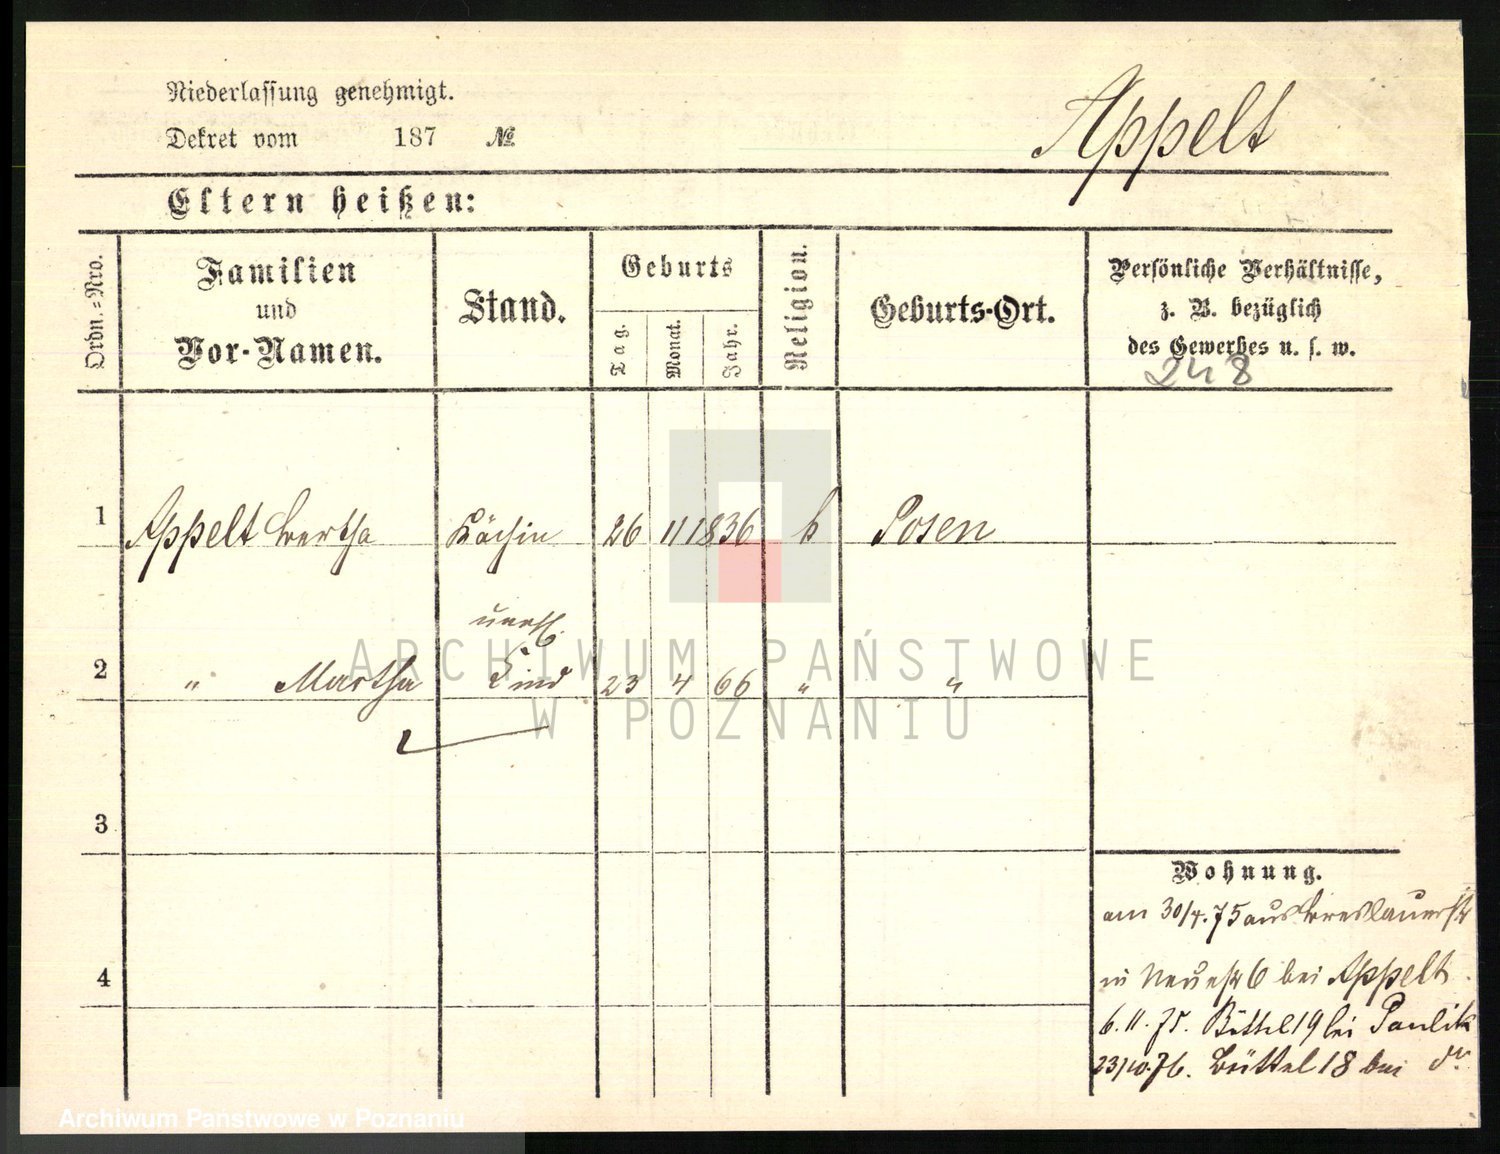 Niederlassung genehmigt.
Dekret vom 187 №
Appelt
Eltern heißen:
Ordn.=Nro.
Familien
und
Vor-Namen.
Stand.
Geburts
Tag.
Monat.
Jahr.
Religion.
Geburts-Ort.
Persönliche Verhältnisse,
z. B. bezüglich
des Gewerbes u. s. w.
248
1 Appelt Bertha Köchin 26 11 1836 k Posen
unehl.
2 " Martha Kind 23 4 66 " "
3
4
Wohnung.
am 30/4.75 aus Breslauerstr
in Neuestr 6 bei Appelt.
6.11.75. Büttel 19 bei Paulik
23/10.76. Büttel 18 bei do
ARCHIWUM PAŃSTWOWE
W POZNANIU
Archiwum Panstwowe w Poznaniu